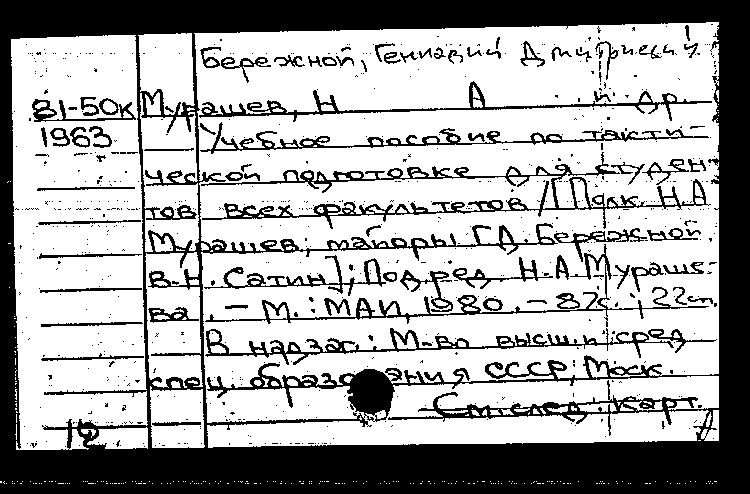 Бережной, Геннадий Дмитриевич.
81-50к Мурашев, Н А и др.
1963 Учебное пособие по такти-
ческой подготовке для студен-
тов всех факультетов / [Полк. Н.А.
Мурашев, майоры Г.Д. Бережной,
В.Н. Сатин]; Под ред. Н.А. Мураше-
ва. – М. : МАИ, 1980. – 87с. ; 22см.
В надзаг.: М-во высш. и сред.
спец. образования СССР, Моск.
См. след. карт.
12